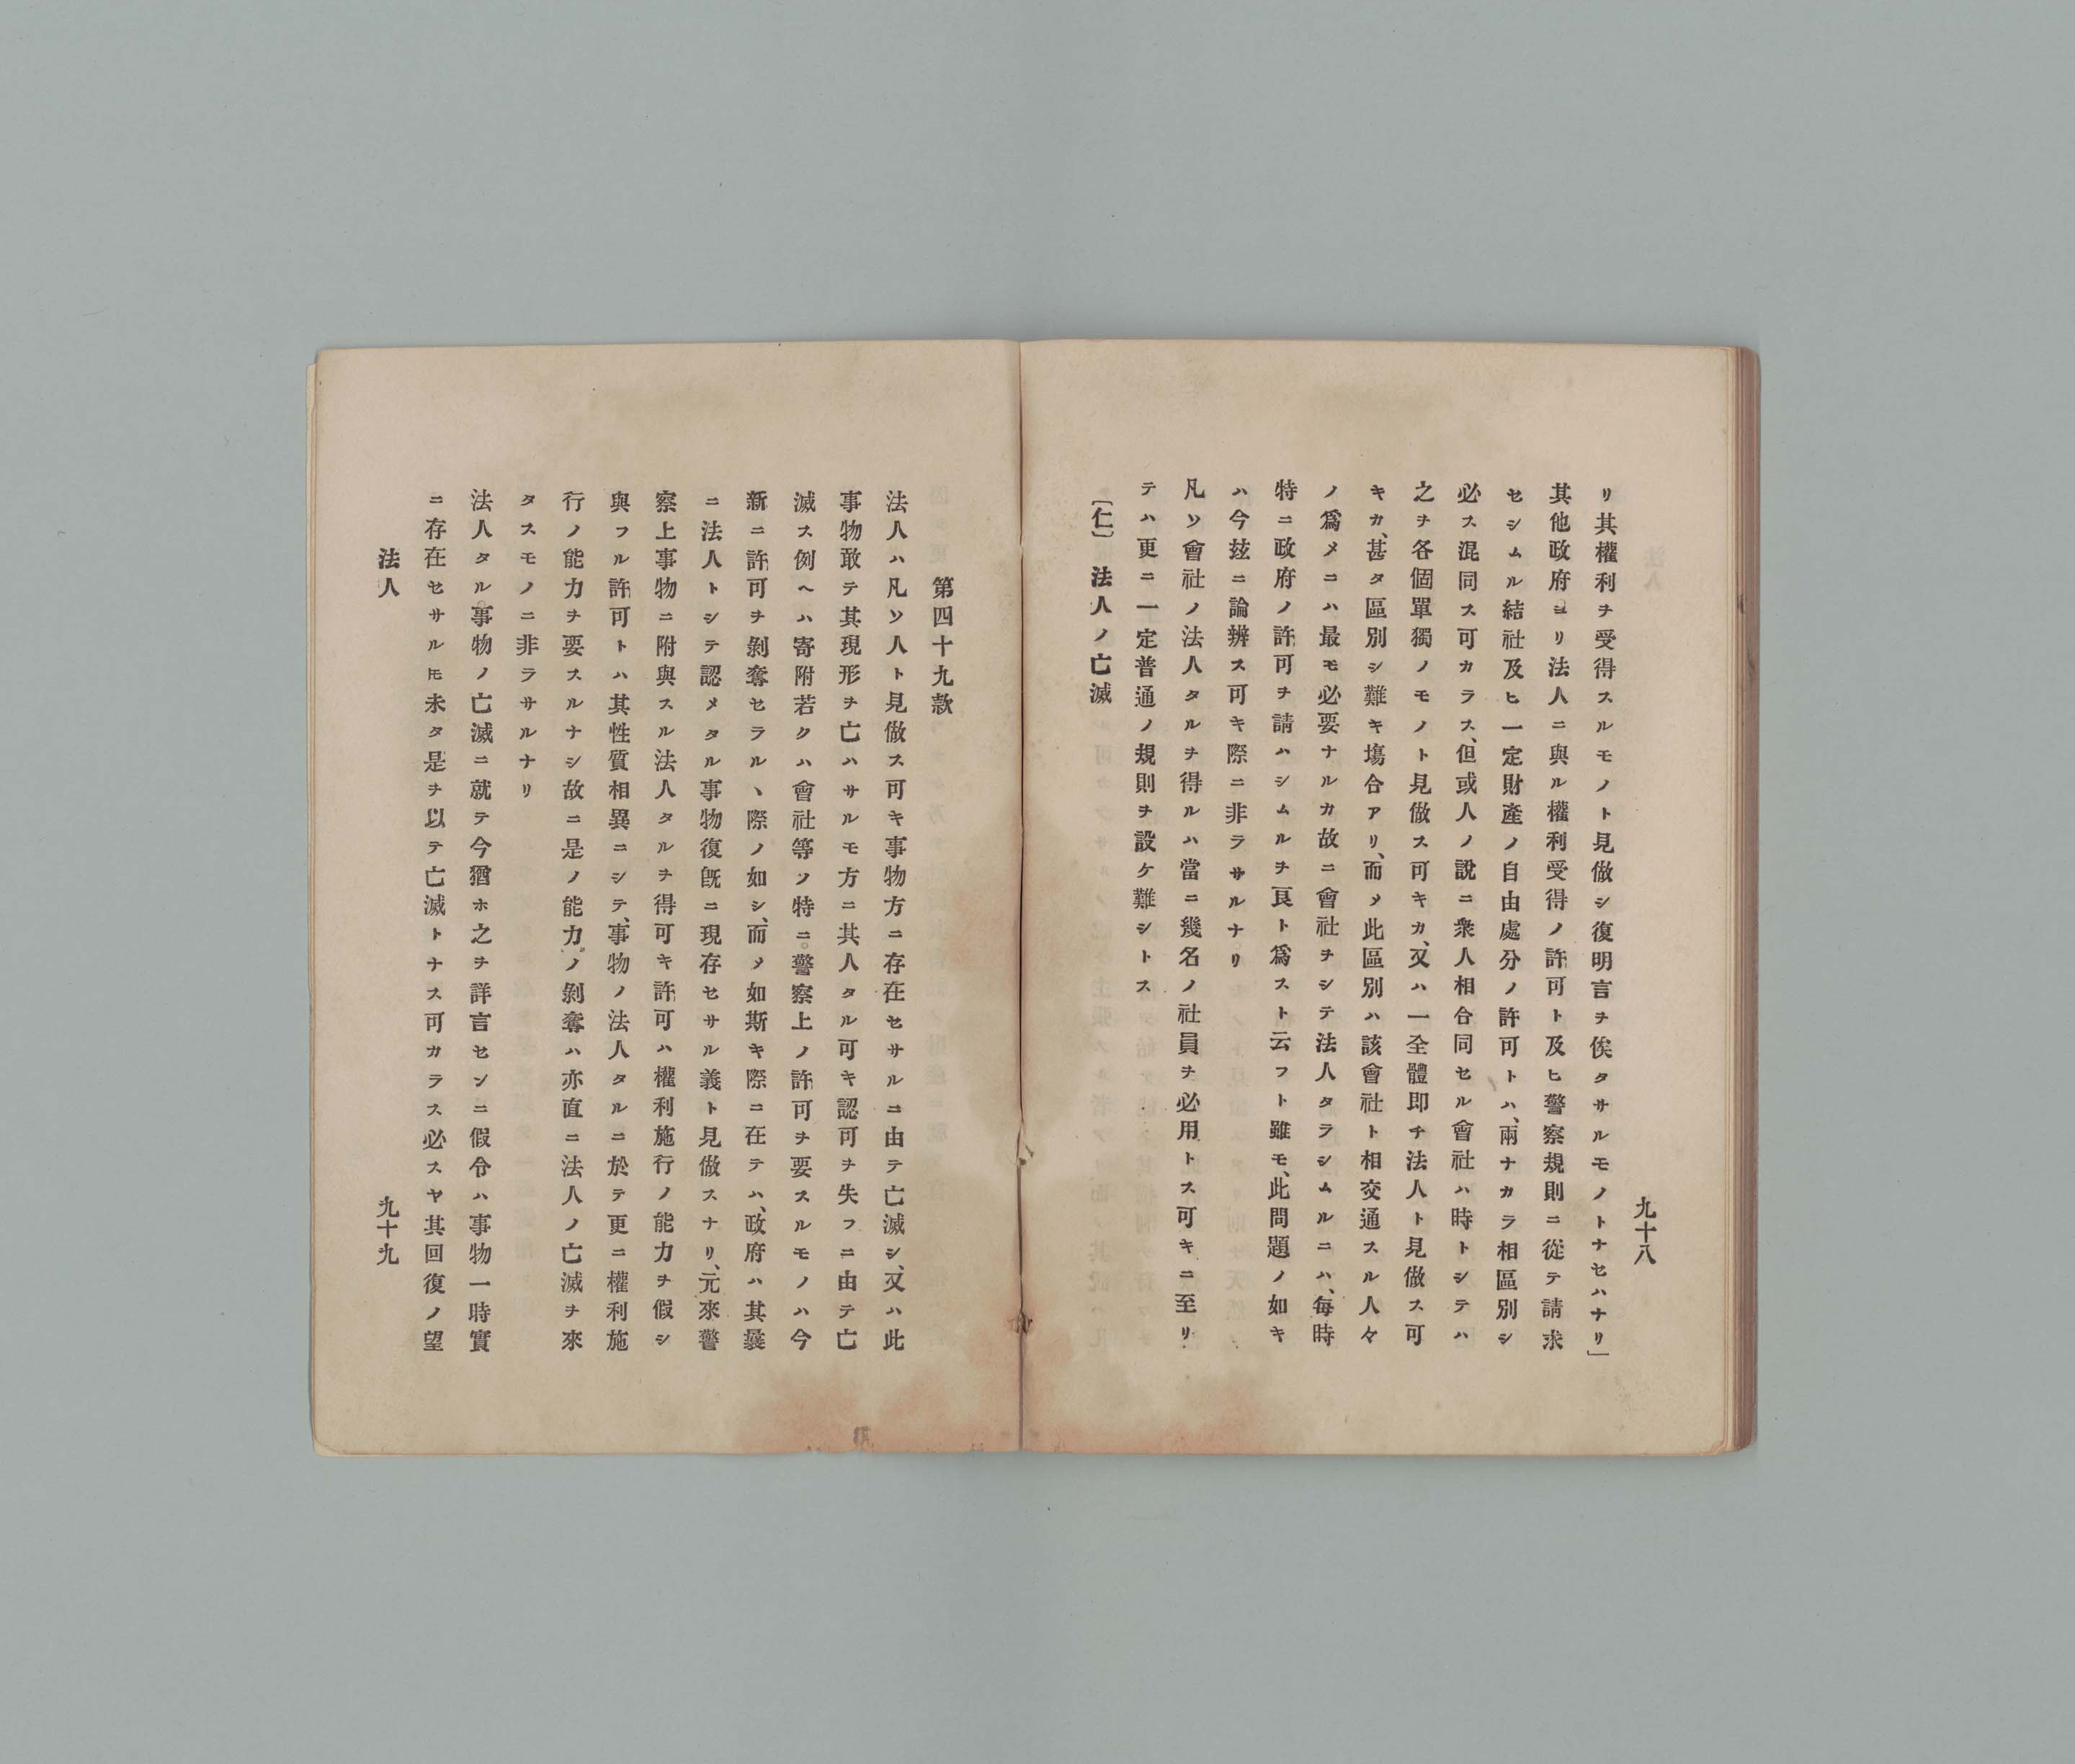 九十八
リ其權利ヲ受得スルモノト見做シ復明言ヲ俟タサルモノトナセハナリ」
其他政府ヨリ法人ニ與ル權利受得ノ許可ト及ヒ警察規則ニ從テ請求
セシムル結社及ヒ一定財產ノ自由處分ノ許可トハ、兩ナカラ相區別シ
必ス混同ス可カラス、但或人ノ說ニ衆人相合同セル會社ハ時トシテハ
之ヲ各個單獨ノモノト見做ス可キカ、又ハ一全體即チ法人ト見做ス可
キカ、甚タ區別シ難キ塲合アリ、而メ此區別ハ該會社ト相交通スル人々
ノ爲メニハ最モ必要ナルカ故ニ會社ヲシテ法人タラシムルニハ、每時
特ニ政府ノ許可ヲ請ハシムルヲ良ト爲スト云フト雖モ、此問題ノ如キ
ハ今玆ニ論辨ス可キ際ニ非ラサルナリ
凡ソ會社ノ法人タルヲ得ルハ當ニ幾名ノ社員ヲ必用トス可キニ至リ
テハ更ニ一定普通ノ規則ヲ設ケ難シトス
〔仁〕法人ノ亡滅
第四十九款
法人ハ凡ソ人ト見做ス可キ事物方ニ存在セサルニ由テ亡滅シ、又ハ此
事物敢テ其現形ヲ亡ハサルモ方ニ其人タル可キ認可ヲ失フニ由テ亡
滅ス例ヘハ寄附若クハ會社等ソノ特ニ警察上ノ許可ヲ要スルモノハ今
新ニ許可ヲ剝奪セラルヽ際ノ如シ、而メ如斯キ際ニ在テハ、政府ハ其曩
ニ法人トシテ認メタル事物復既ニ現存セサル義ト見做スナリ、元來警
察上事物ニ附與スル法人タルヲ得可キ許可ハ權利施行ノ能力ヲ假シ
與フル許可トハ其性質相異ニシテ、事物ノ法人タルニ於テ更ニ權利施
行ノ能力ヲ要スルナシ故ニ是ノ能力ノ剝奪ハ亦直ニ法人ノ亡滅ヲ來
タスモノニ非ラサルナリ
法人タル事物ノ亡滅ニ就テ今猶ホ之ヲ詳言センニ假令ハ事物一時實
ニ存在セサルモ未タ是ヲ以テ亡滅トナス可カラス必スヤ其回復ノ望
法人
九十九